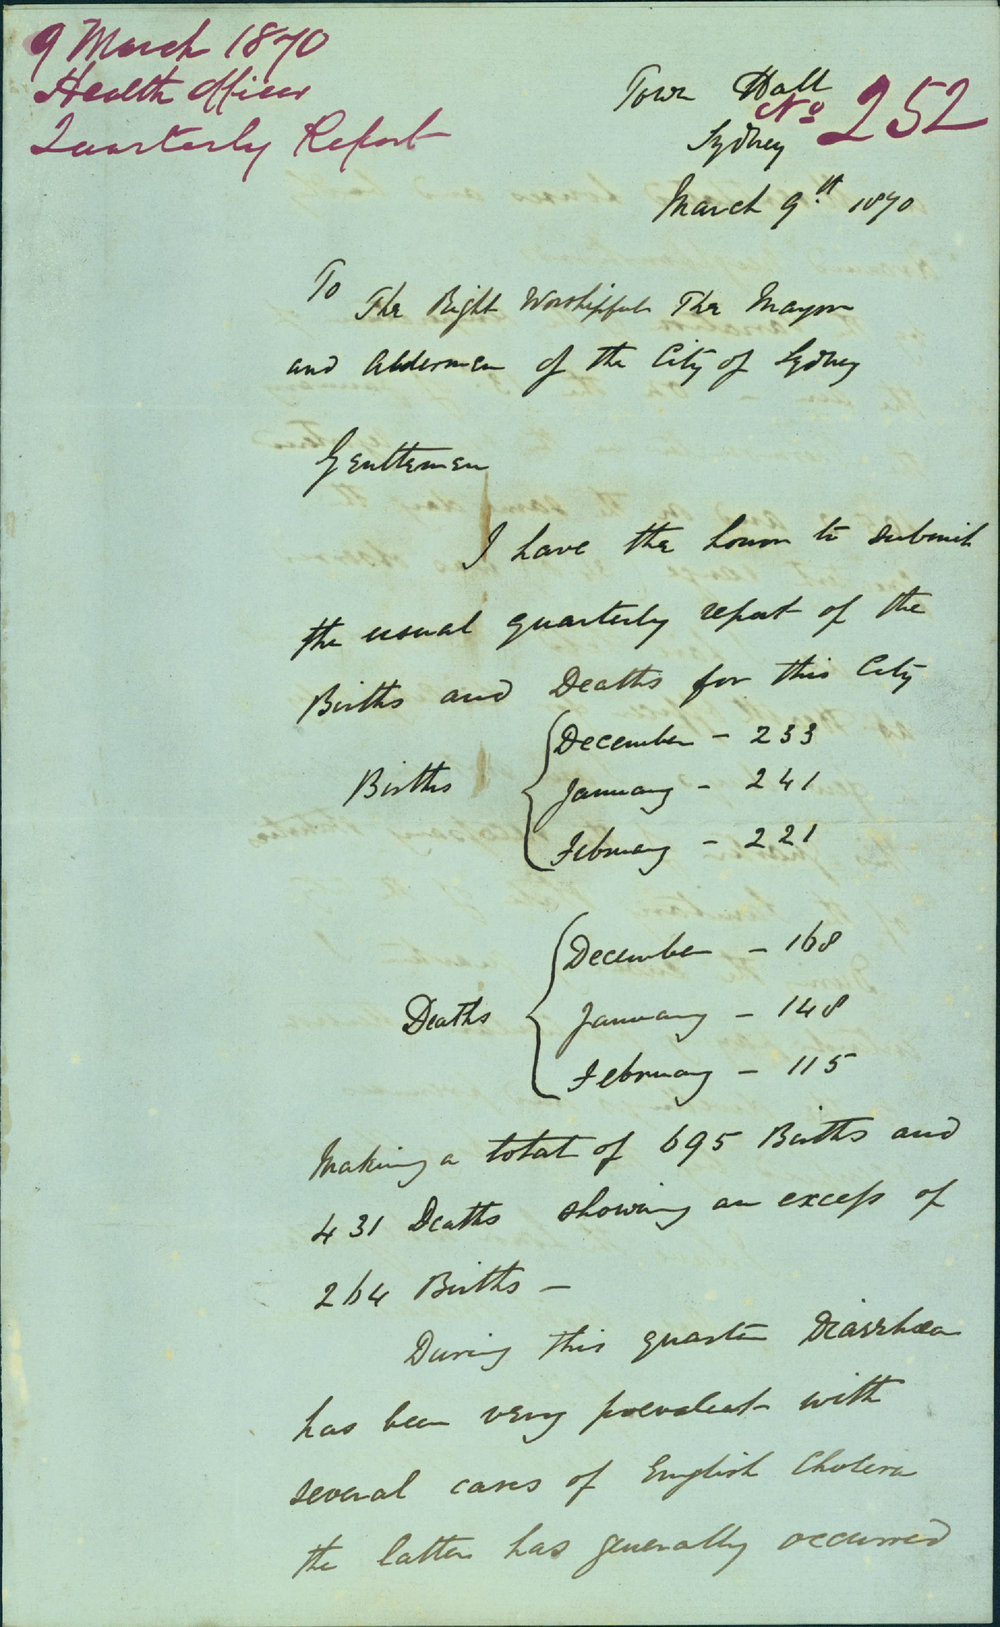 9 March 1870
Health Officer
Quarterly Report
Town Hall
No 252
Sydney
March 9th 1870
To
The Right Worshipful The Mayor
and Aldermen of the City of Sydney
Gentlemen
I have the honor to submit
the usual quarterly report of the
Births and Deaths for this City
Births
December - 233
January - 241
February - 221
Deaths
December - 168
January - 148
February - 115
Making a total of 695 Births and
431 Deaths showing an excess of
264 Births -
During this quarter Diarrhœa
has been very prevalent with
several cases of English Cholera
the latter has generally occurred